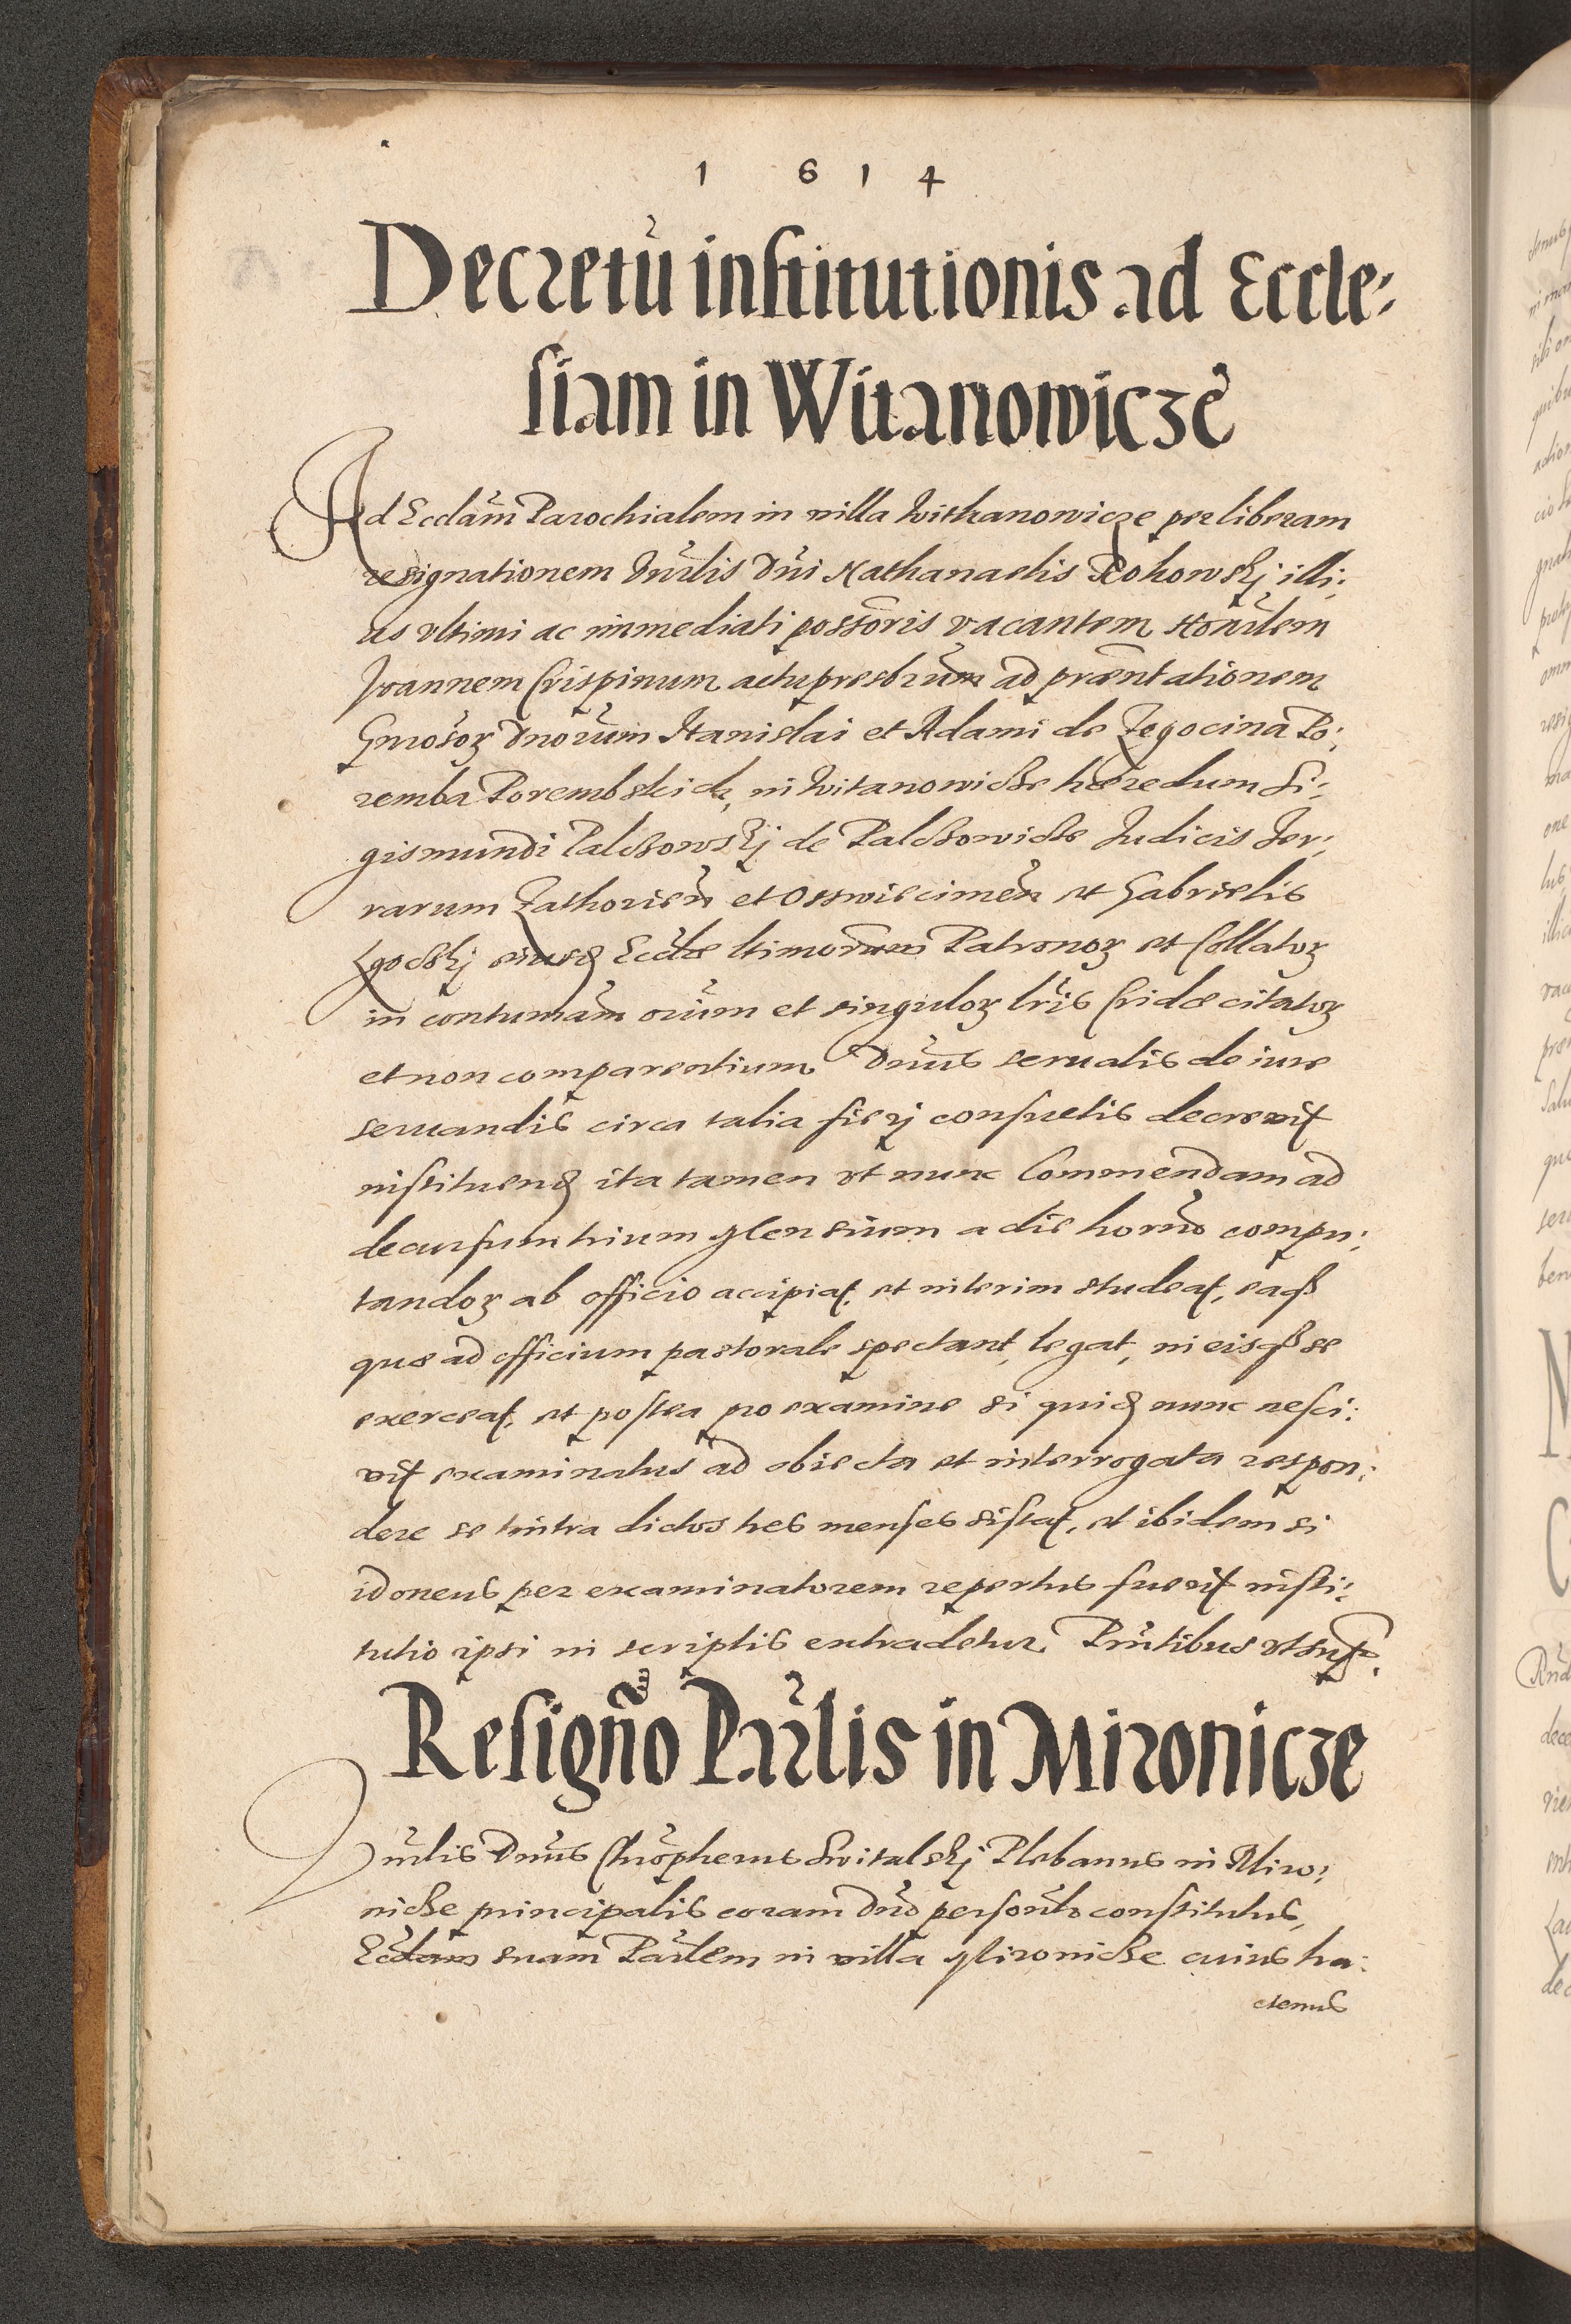 1 6 1 4
Decretũ institutionis ad Eccle:
siam in Witanowicze
Ad Eccłam Parochialem in villa Withanowicze per liberam
resignationem Vnrlis Dni Nathanaelis Rokowskj illi:
us vltimi ac immediati possoris vacantem Honrlem
Joannem Crispinum actu presbrum ad præntationem
Gnrosoꝝ Dnorum Stanislai et Adami de Zegocina Po:
remba Porembskich, in Witanowicze hæredum Si:
gismundi Palczowskj de Palczowicze Judicis Ter:
rarum Zathorien et Osswiecimen et Gabrielis
eiusd Eccłæ ltimorum Patronoꝝ et Collatoꝝ
in contumam oium et singuloꝝ lris Cridæ citatoꝝ
et non comparentium Dnus seruatis de iure
seruandis circa talia fierj consuetis decreuit
instituend ita tamen vt nunc Commendam ad
decursum trium Mensium a die horno compu:
tandoꝝ ab officio accipiat, et interim studeat, eaqꝫ
quæ ad officium pastorale spectant, legat, in eisqꝫ se
exerceat, et postea pro examine si quid nunc nesci:
vit examinatus ad obiecta et interrogata respon:
dere se intra dictos tres menses sistat, et ibidem si
idoneus per examinatorem repertus fuerit insti:
tutio ipsi in scriptis extradetur. Pntibus vt supr.
Resigno Parlis in Mironicze
Vnrlis Dnus Chrophorus Switalskj Plebanus in Miro:
nicze principalis coram Dno personlr constitutus,
Eccłam suam Parlem in villa Mironicze cuius ha:
ctenus